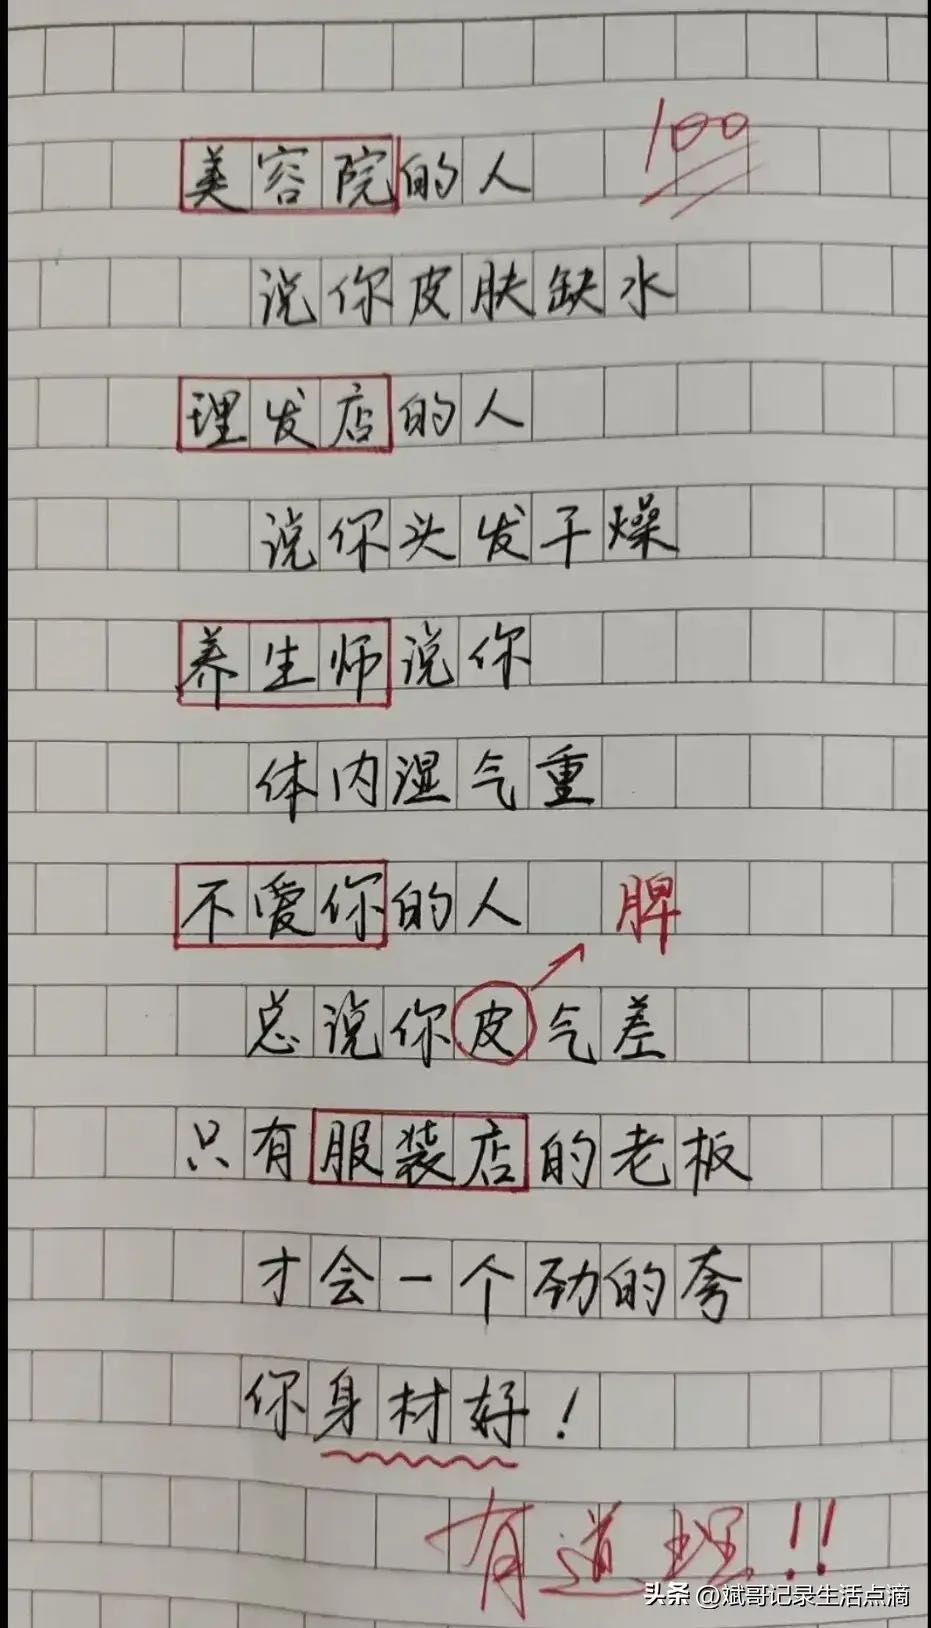 100
美容院的人
说你皮肤缺水
理发店的人
说你头发干燥
养生师说你
体内湿气重
不爱你的人 脾
总说你皮气差
只有服装店的老板
才会一个劲的夸
你身材好！
有道理！！
头条 @斌哥记录生活点滴